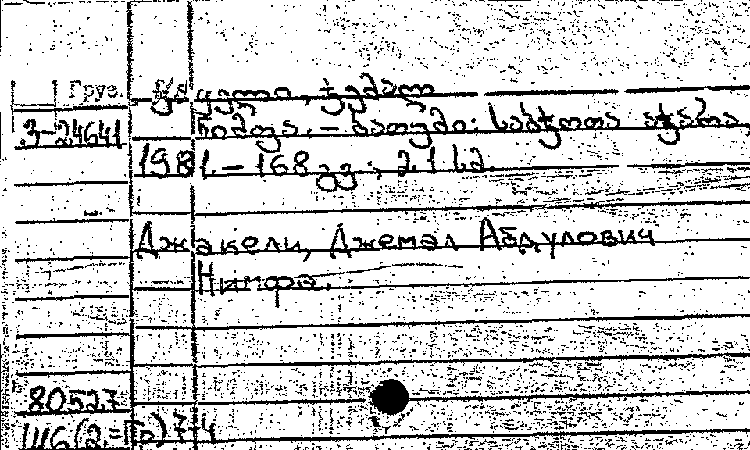 Груз.
ჯაყელი, ჯემალ
3-24641
ნიმფა. – ბათუმი: საბჭოთა აჭარა,
1981. – 168 გვ.; 21 სმ.
Джакели, Джемал Абдулович
Нимфа.
80527
Ш6(2=Гр)7-4